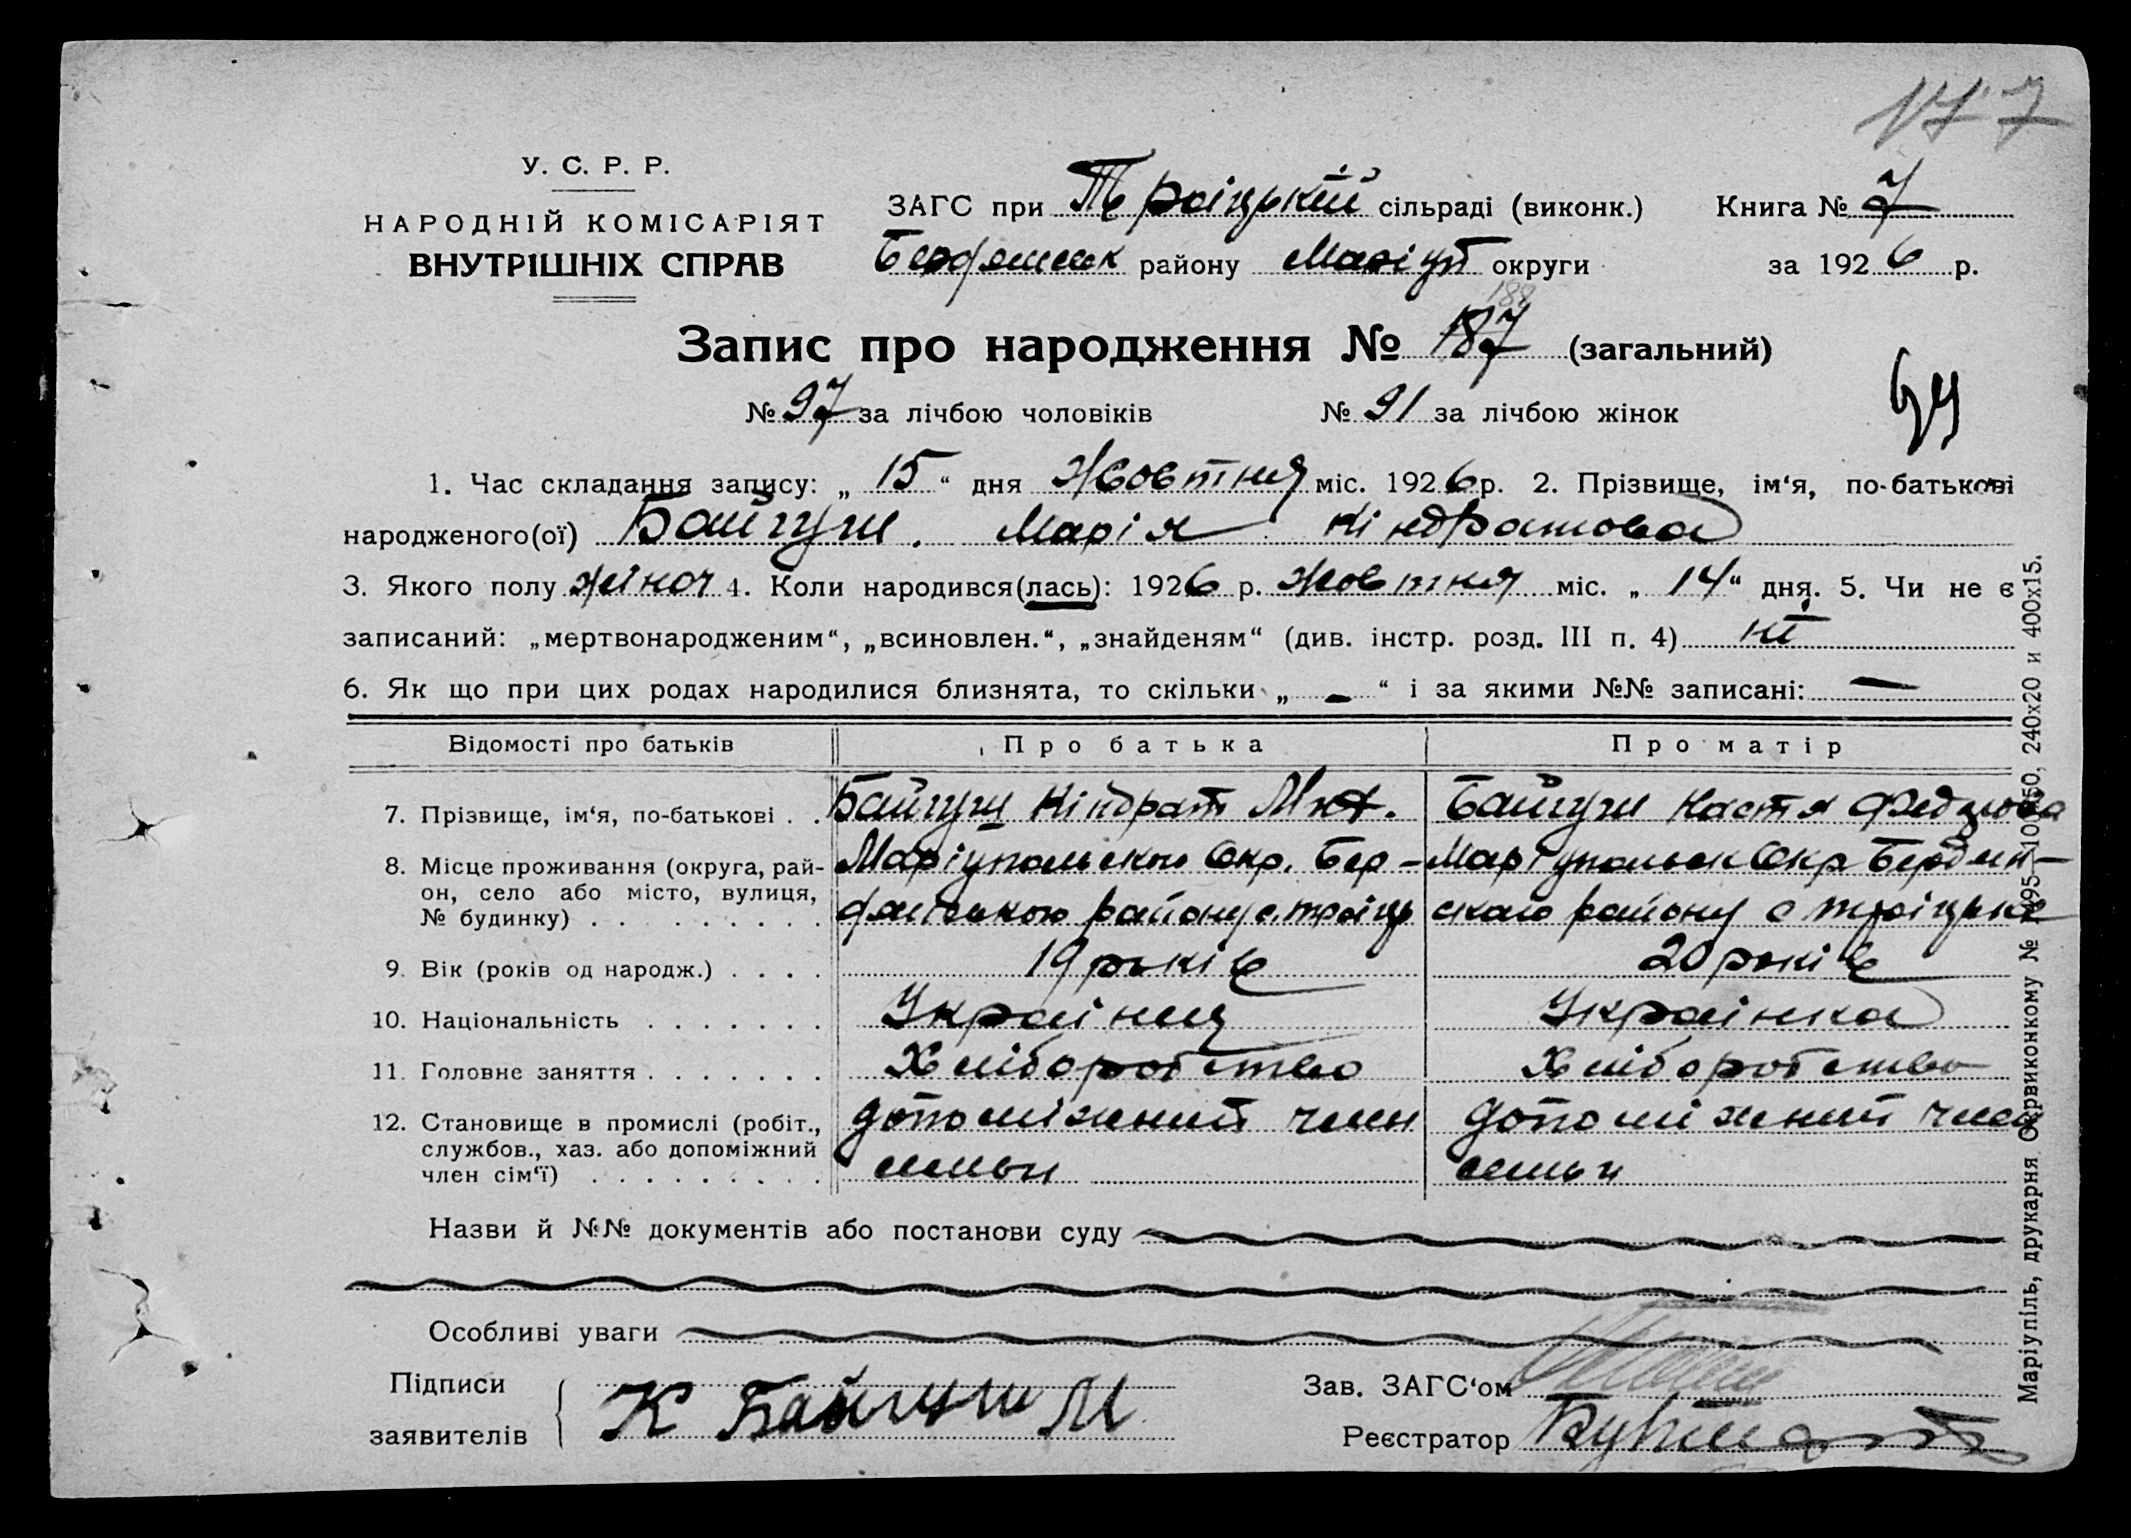 177
У. С. Р. Р.
НАРОДНІЙ КОМІСАРІЯТ
ВНУТРІШНІХ СПРАВ
ЗАГС при Троіцькій сільраді (виконк.) Книга № 7
Бердянськ району Маріуп округи за 1926 р.
188
Запис про народження № 187 (загальний)
№ 97 за лічбою чоловіків № 91 за лічбою жінок
1. Час складання запису: „ 15 “ дня Жовтня міс. 1926 р. 2. Прізвище, ім‘я, по-батькові
народженого(ої) Байгуш. Марія Кіндратова
3. Якого полу жіноч 4. Коли народився(лась): 1926 р. Жовтня міс. „ 14 “ дня. 5. Чи не є
записаний: „мертвонародженим“, „всиновлен.“, „знайденям“ (див. інстр. розд. III п. 4) ні
6. Як що при цих родах народилися близнята, то скільки „ – “ і за якими №№ записані: —
Відомості про батьків Про батька Про матір
7. Прізвище, ім‘я, по-батькові . . Байгуш Кіндрат Байгуш Настя
8. Місце проживання (округа, рай- Маріупольскои Окр. Бер- Маріупольск Окр Бердян-
он, село або місто, вулиця, дянського району с. троіць ского району с троіцьке
№ будинку) . . . . . . . .
9. Вік (років од народж.) . . . . 19 років 20 років
10. Національність . . . . . . . Украіниц Украінка
11. Головне заняття . . . . . . . Хліборобство Хліборобство
12. Становище в промислі (робіт., допоміжний член допоміжний член
службов., хаз. або допоміжний семьи семьи
член сім‘ї) . . . . . . . . .
Назви й №№ документів або постанови суду
Особливі уваги
Підписи Зав. ЗАГС‘ом
заявителів К Байгуш М Реєстратор
Маріупіль, друкарня Окрвиконкому № 240х20 и 400х15.